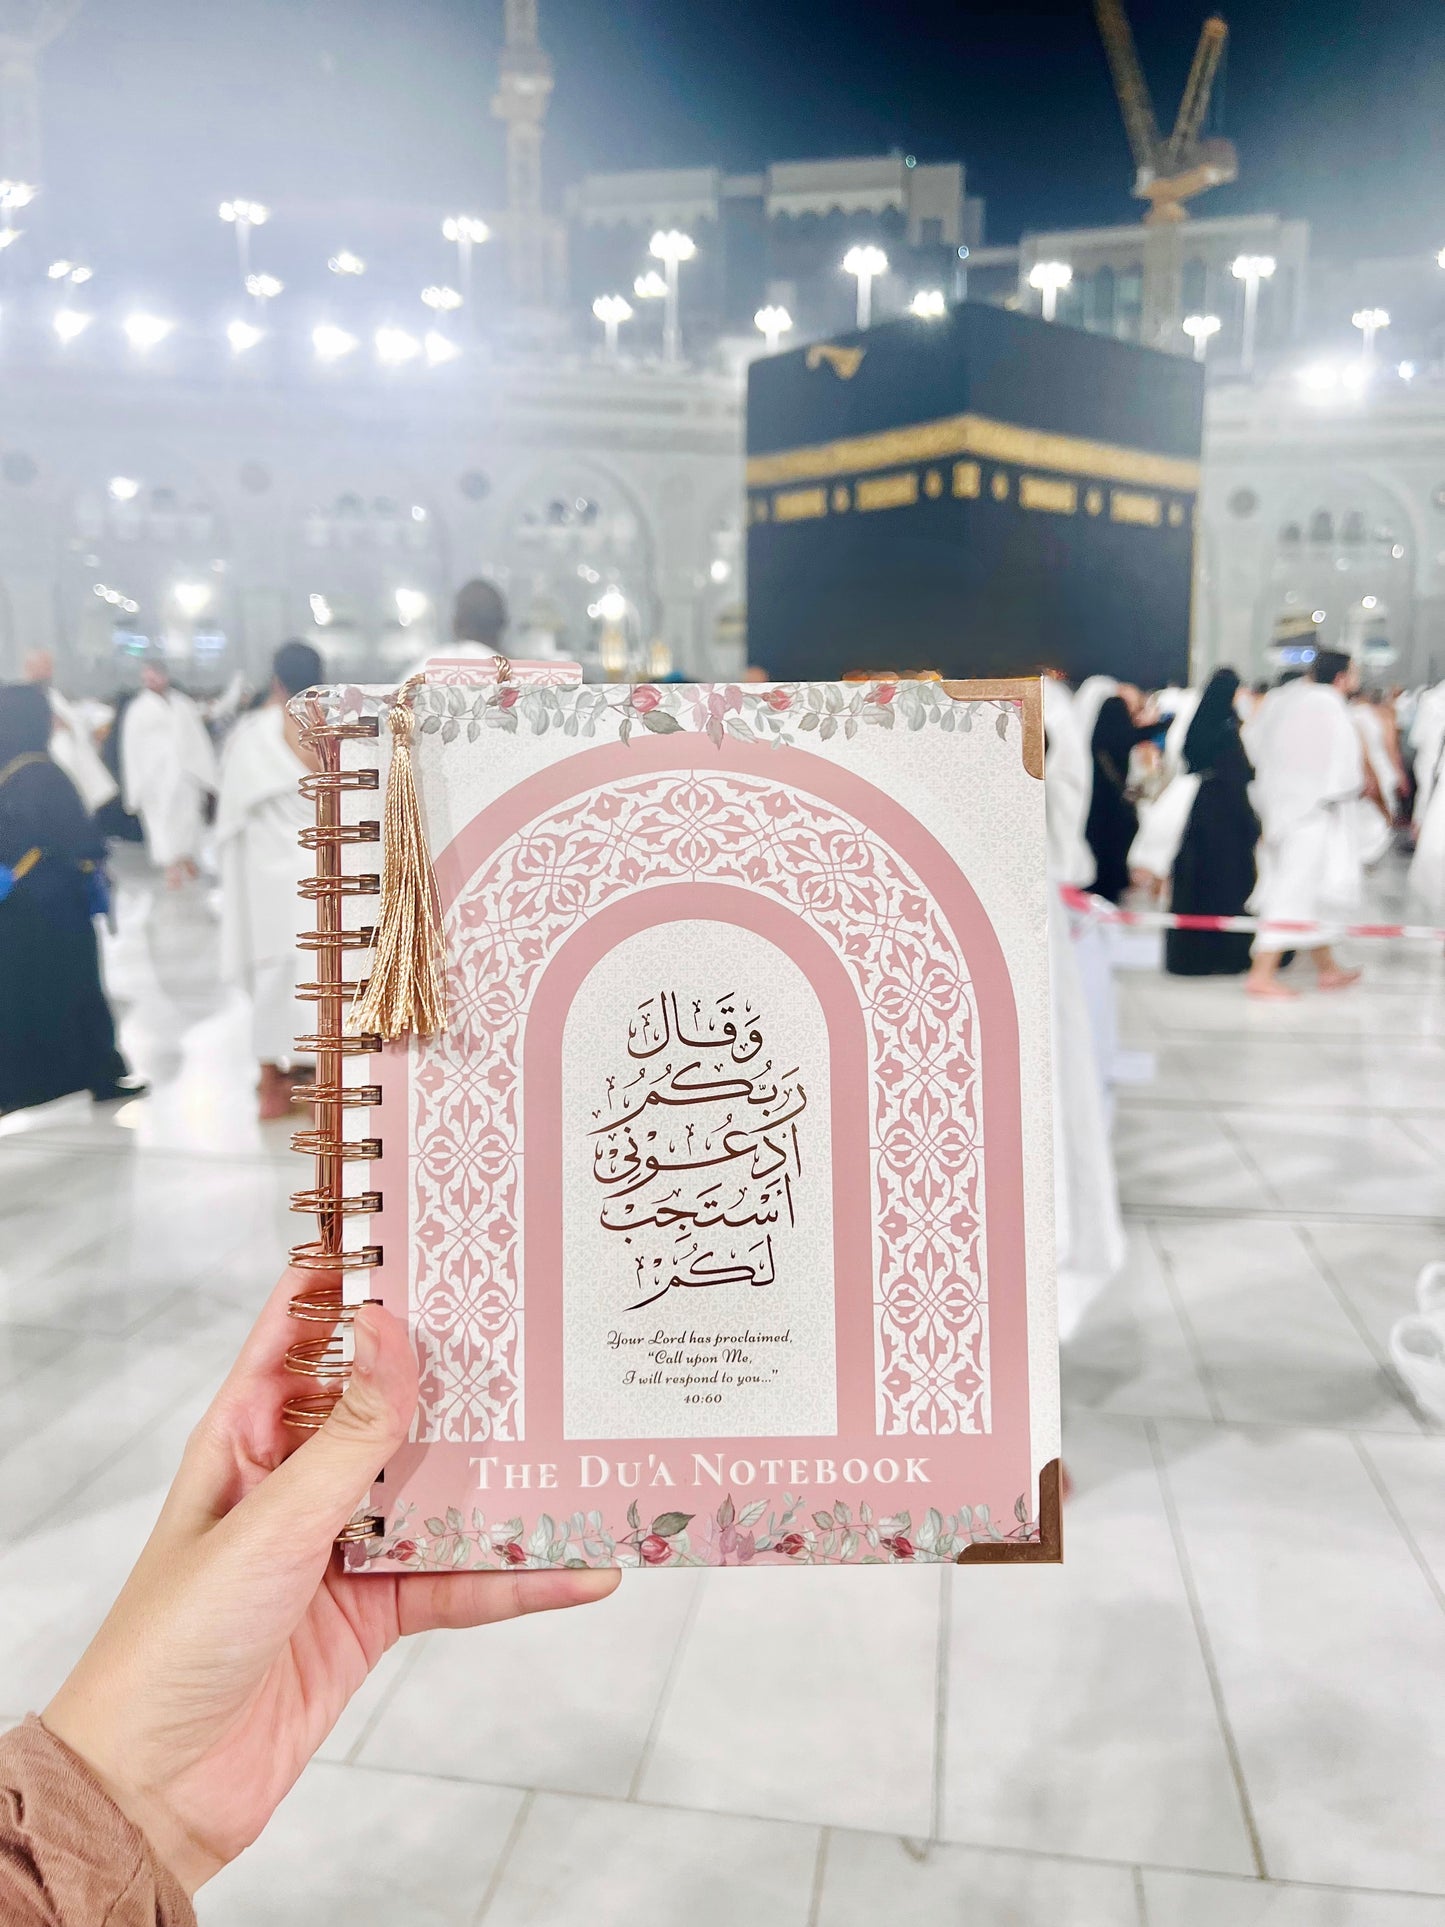 وَقَالَ
رَبُّكُمُ
ادْعُونِي
أَسْتَجِبْ
لَكُمْ
Your Lord has proclaimed,
“Call upon Me,
I will respond to you...”
40:60
The Du'a Notebook